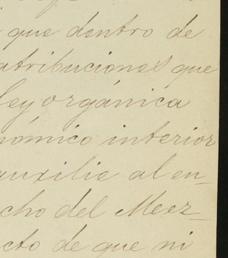 que dentro de
atribuciones que
ley orgánica
nómico interior
auxilie al en-
cho del Meer-
cto de que ni